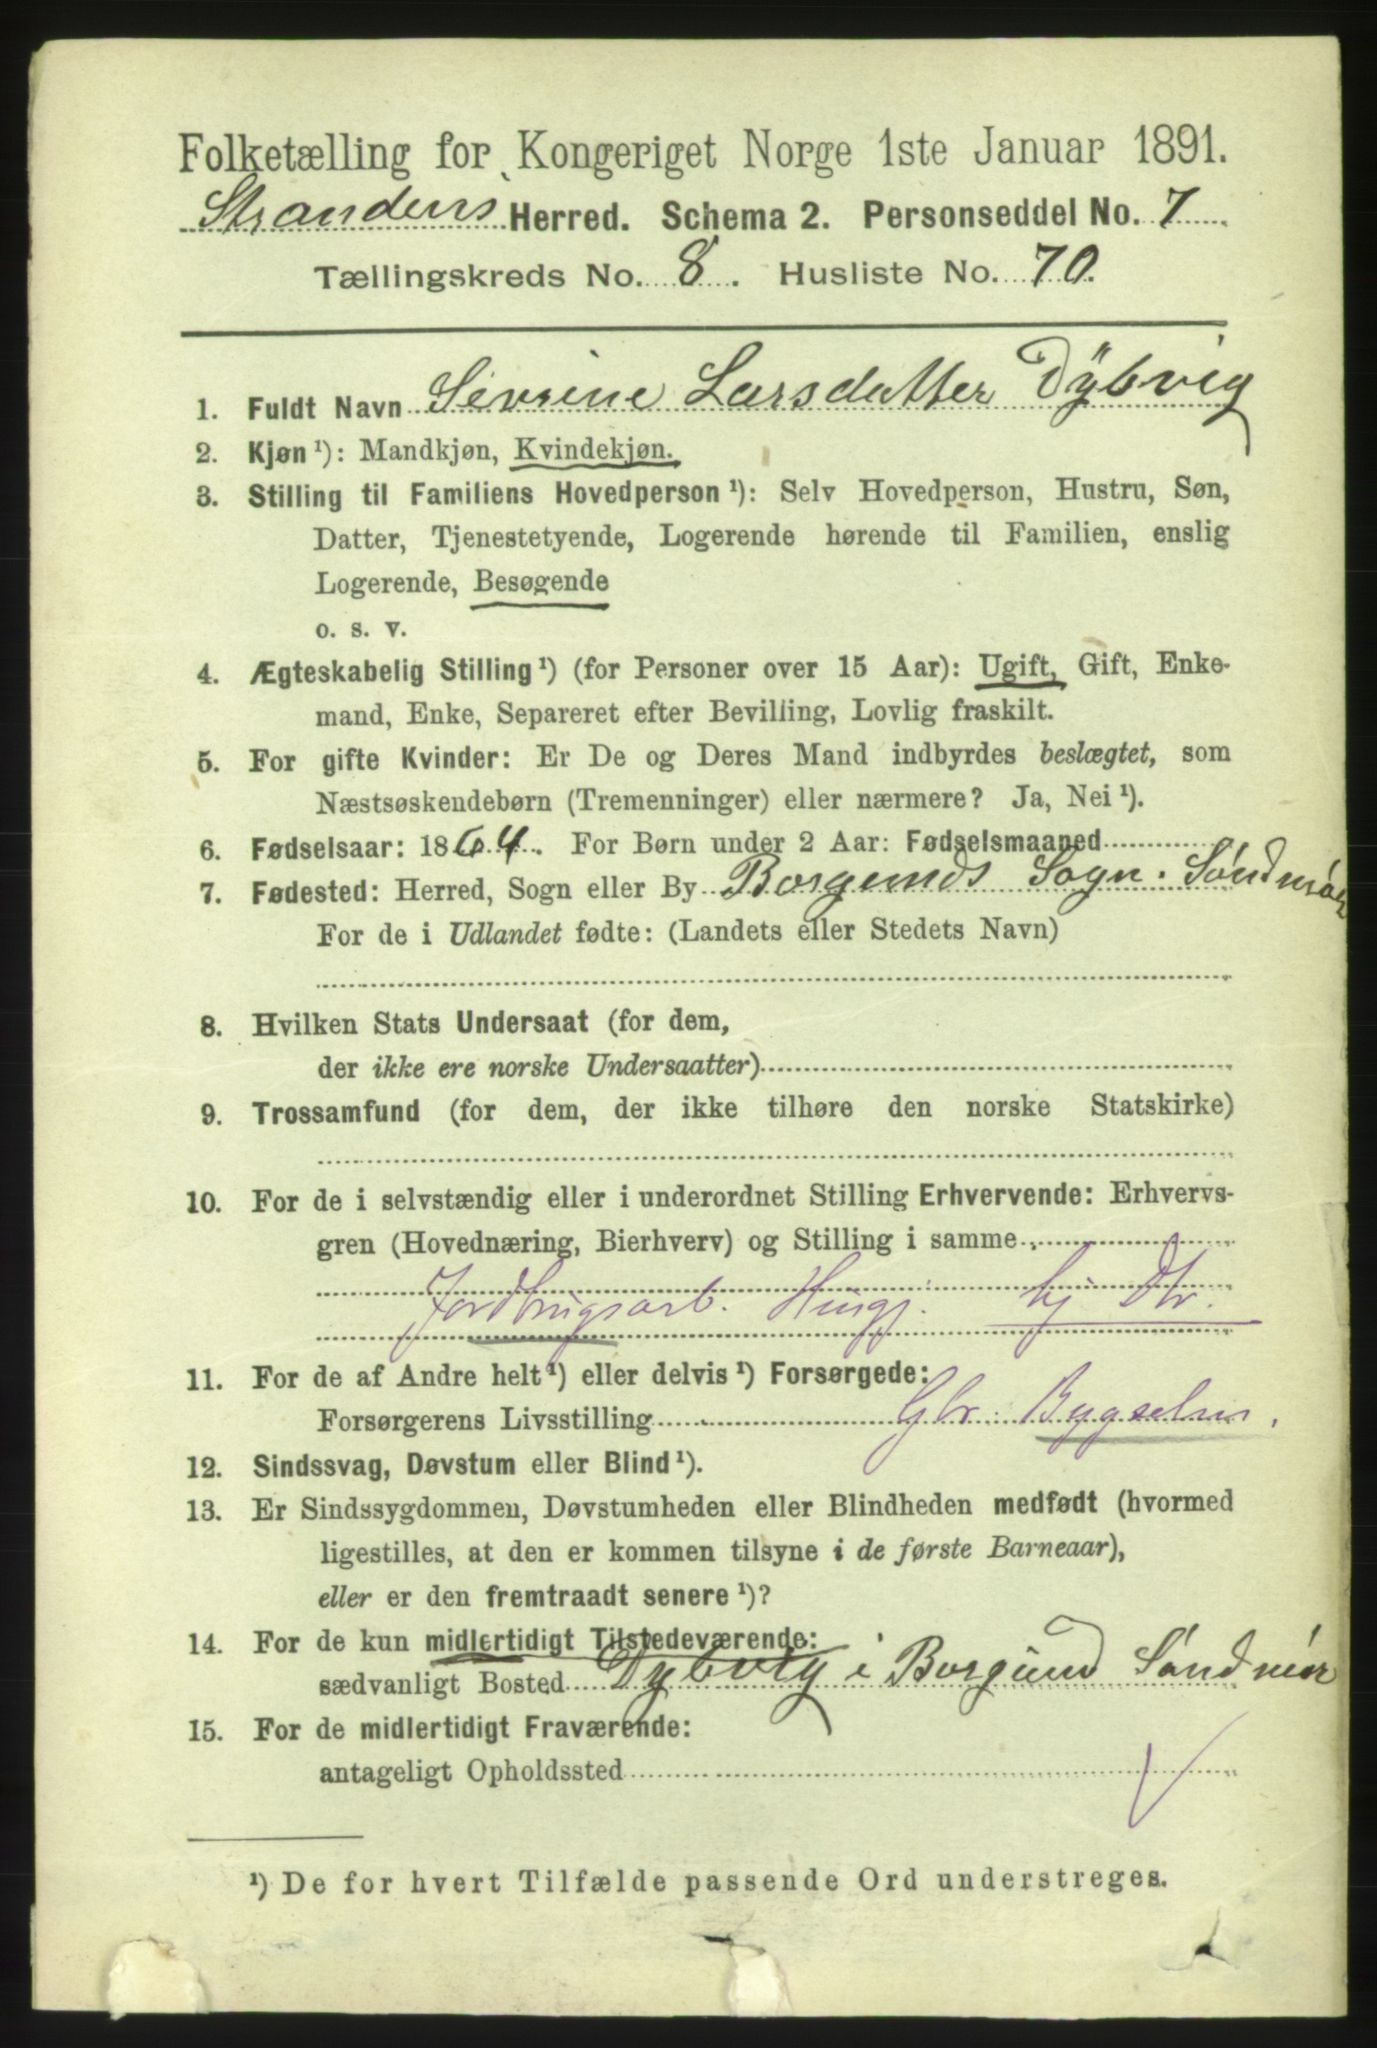 Folketælling for Kongeriget Norge 1ste Januar 1891.
Strandens Herred. Schema 2. Personseddel No. 7
Tællingskreds No. 8. Husliste No. 70.
1. Fuldt Navn Sivrine Larsdatter Dÿbvig
2. Kjøn¹): Mandkjøn, Kvindekjøn.
3. Stilling til Familiens Hovedperson¹): Selv Hovedperson, Hustru, Søn,
Datter, Tjenestetyende, Logerende hørende til Familien, enslig
Logerende, Besøgende
o. s. v.
4. Ægteskabelig Stilling¹) (for Personer over 15 Aar): Ugift, Gift, Enke-
mand, Enke, Separeret efter Bevilling, Lovlig fraskilt.
5. For gifte Kvinder: Er De og Deres Mand indbyrdes beslægtet, som
Næstsøskendebørn (Tremenninger) eller nærmere? Ja, Nei¹).
6. Fødselsaar: 1864. For Børn under 2 Aar: Fødselsmaaned
7. Fødested: Herred, Sogn eller By Borgunds Sogn. Søndmør
For de i Udlandet fødte: (Landets eller Stedets Navn)
8. Hvilken Stats Undersaat (for dem,
der ikke ere norske Undersaatter)
9. Trossamfund (for dem, der ikke tilhøre den norske Statskirke)
10. For de i selvstændig eller i underordnet Stilling Erhvervende: Erhvervs-
gren (Hovednæring, Bierhverv) og Stilling i samme
Jordbrugsarb. Husgj. hj Dtr.
11. For de af Andre helt¹) eller delvis¹) Forsørgede:
Forsørgerens Livsstilling Gbr. Bygselm.
12. Sindssvag, Døvstum eller Blind¹).
13. Er Sindssygdommen, Døvstumheden eller Blindheden medfødt (hvormed
ligestilles, at den er kommen tilsyne i de første Barneaar),
eller er den fremtraadt senere¹)?
14. For de kun midlertidigt Tilstedeværende:
sædvanligt Bosted Dybvig i Borgund Søndmør
15. For de midlertidigt Fraværende:
antageligt Opholdssted
¹) De for hvert Tilfælde passende Ord understreges.